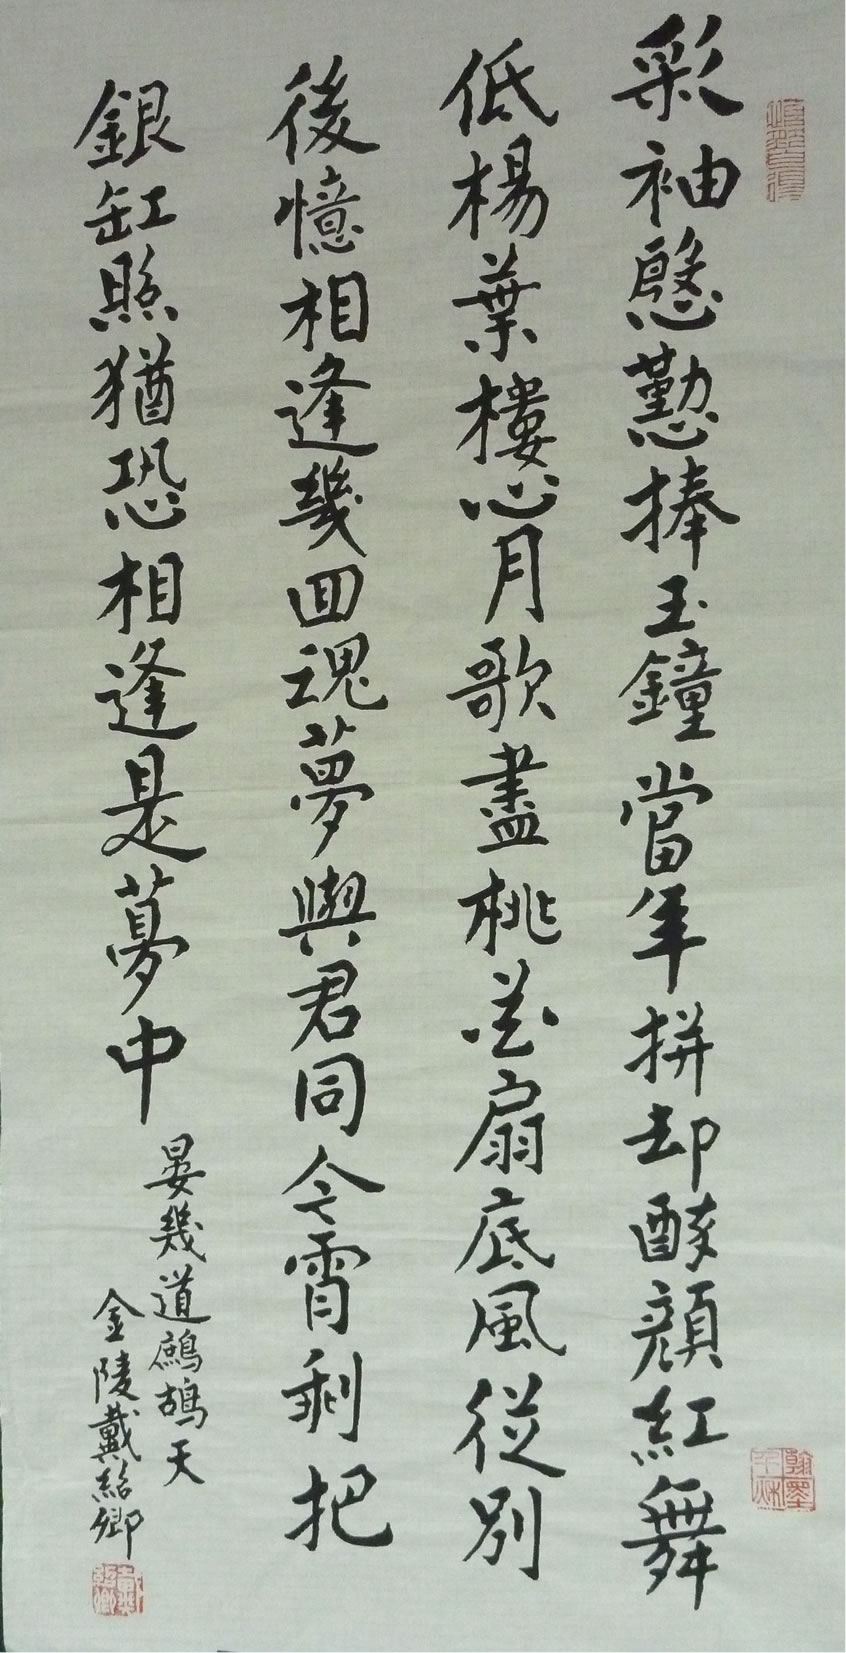 彩袖慇懃捧玉鐘當年拼却醉顔紅舞
低楊葉樓心月歌盡桃花扇底風從別
後憶相逢幾回魂夢與君同今宵剩把
銀缸照猶恐相逢是夢中
晏幾道鷓鴣天
金陵戴紹卿